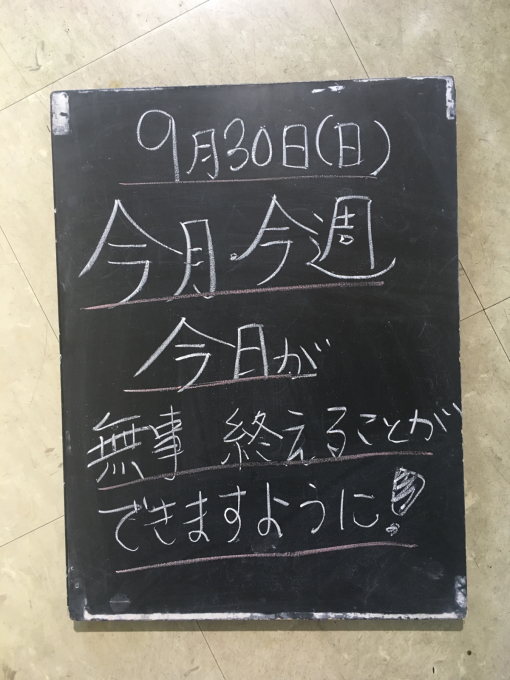 9月30日(日)
今月・今週
今日が
無事 終えることが
できますように!